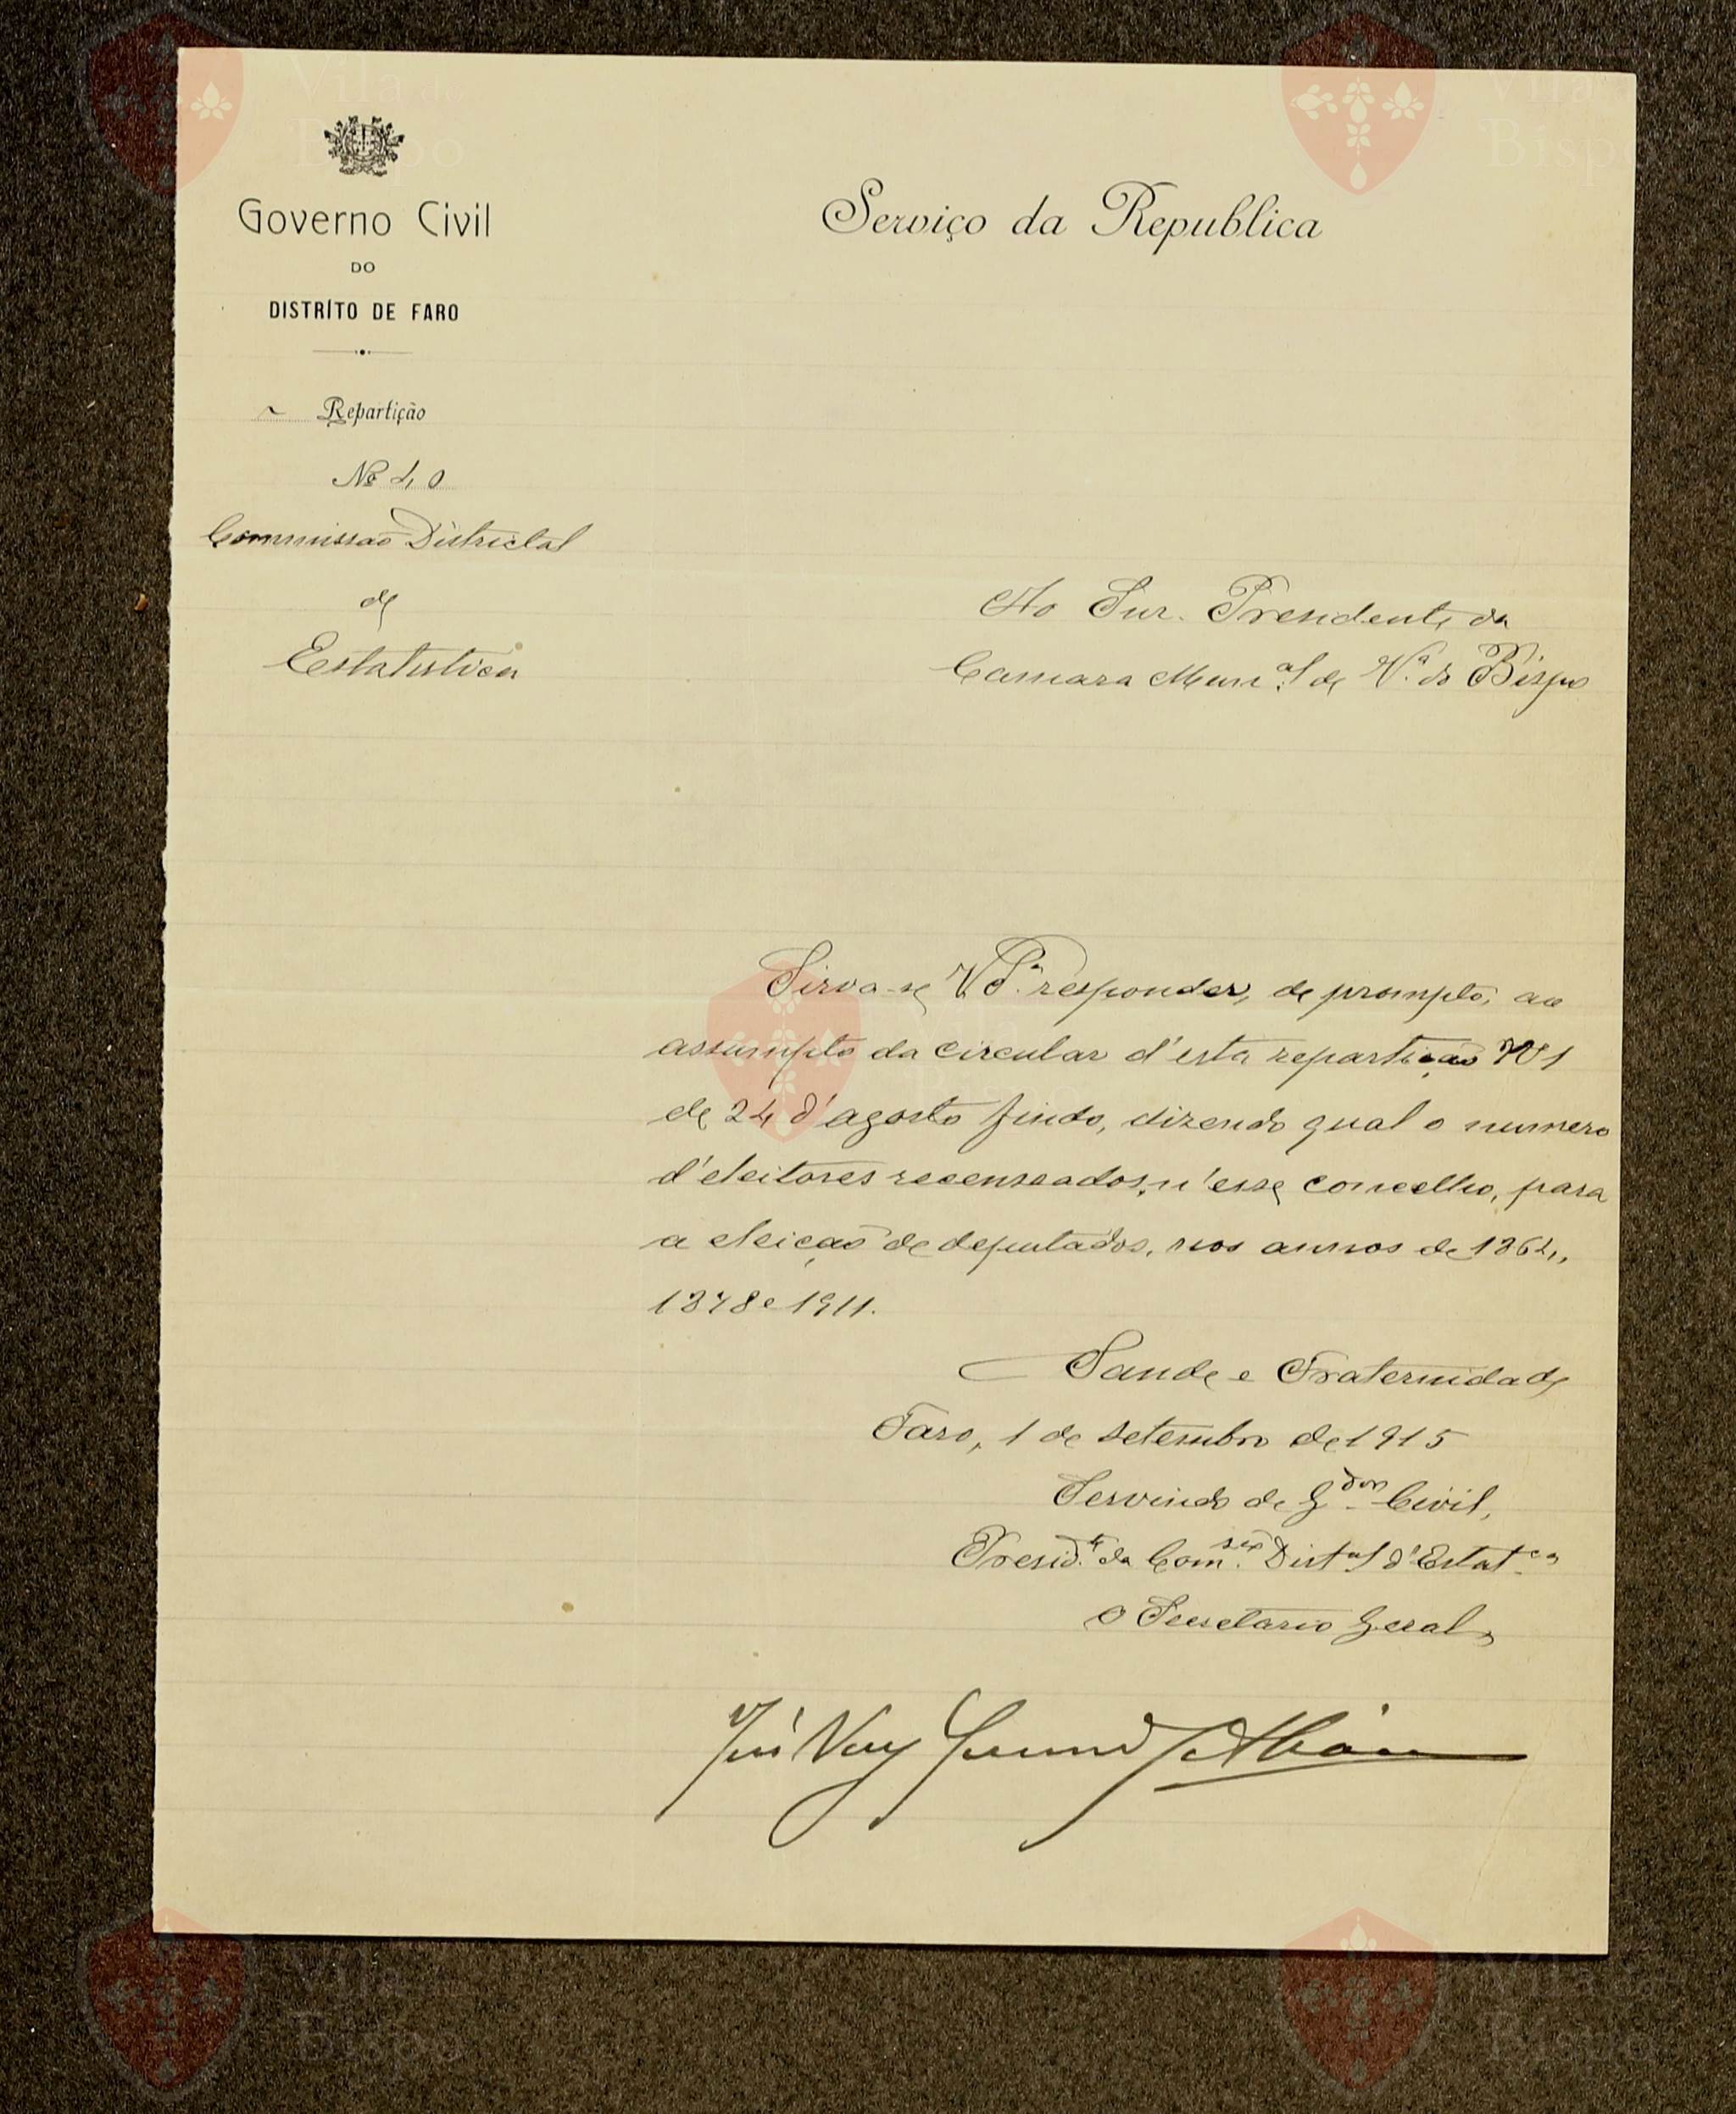 Governo Civil
DO
DISTRÍTO DE FARO
Repartição
Nº 40
Commissão Districtal
de
Estatistica
Serviço da Republica
Ao Snr. Presidente da
Camara Mun.al de V.ª do Bispo
Sirva-se V. S.ª responder, de prompto, ao
assumpto da circular d'esta repartição Nº 1
de 24 d'agosto findo, dizendo qual o numero
d'eleitores recenseados, n'esse concelho, para
a eleição de deputados, nos annos de 1864,
1878 e 1911.
Saude e Fraternidade
Faro, 1 de setembro de 1915
Servindo de G.dor Civil,
Presid.te da Com.são Dist.al d'Estat.ca
O Secretario Geral,
José Vaz
Vila do
Bispo
Vila
Bispo
Vila do
Bispo
Vila do
Bispo
Vila do
Bispo